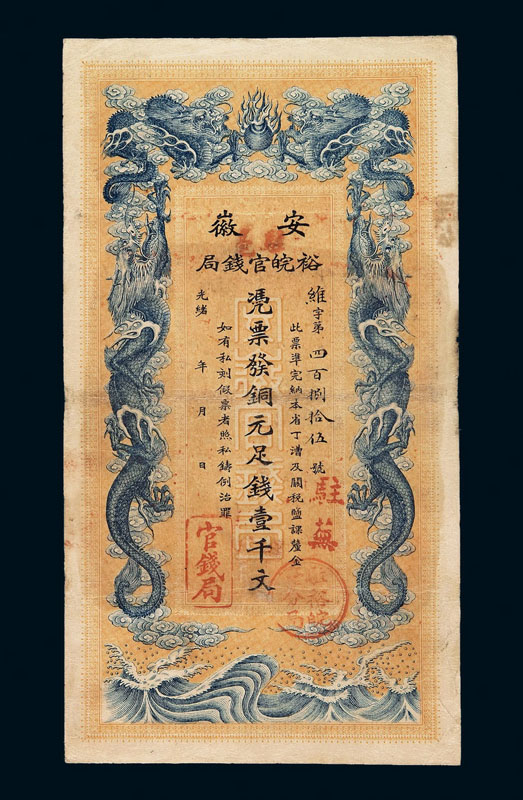 安徽
裕皖官錢局
維字第四百捌拾伍號
此票準完納本省丁漕及關稅鹽課釐金
憑票發銅元足錢壹千文
如有私刻假票者照私鑄例治罪
光緒 年 月 日
駐蕪
官錢局